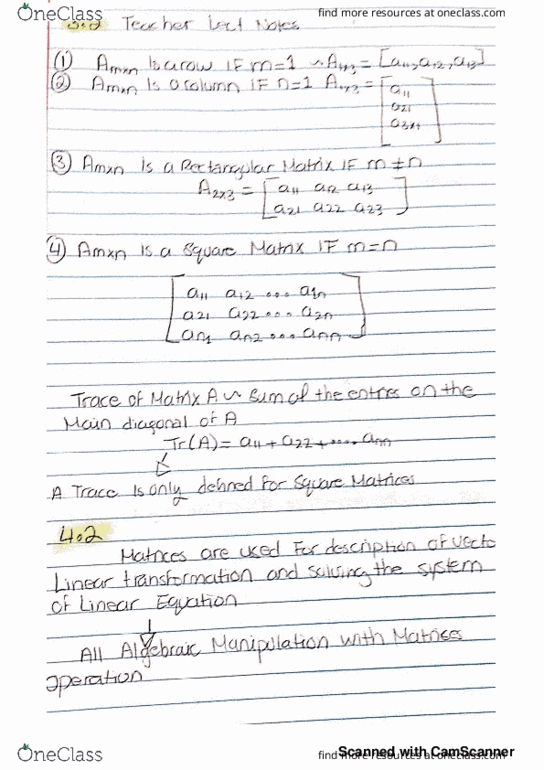 OneClass
find more resources at oneclass.com
find more resources at oneclass.com
Teacher Lect Notes
(1) Amxn Is a row IF m=1 ~ A1x3 = [a11, a12, a13]
(2) Amxn Is a column IF n=1 =
[a11
a21
]
(3) Amxn Is a Rectangular Matrix IF m ≠ n
A2x3 = [a11 a12 a13
a21 a22 a23]
(4) Amxn Is a Square Matrix IF m=n
[a11 a12 ... a1n
a21 a22 ... a2n
an1 an2 ... ann]
Trace of Matrix A ~ Sum of the entries on the
Main diagonal of A
Tr(A) = a11 + a22 + .... ann
A Trace Is only defined For Square Matrices
4.2
Matrices are used For description of vecto
Linear transformation and solving the system
of Linear Equation
All Algebraic Manipulation with Matrices
operation
OneClass
find more resources at oneclass.com
Scanned with CamScanner